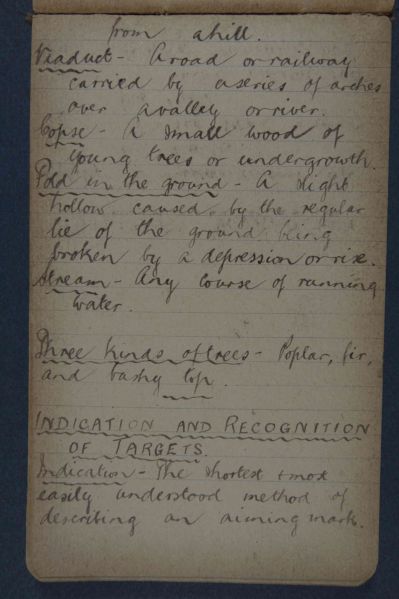 from a hill.
Viaduct - A road or railway
carried by a series of arches
over a valley or river.
Copse - A small wood of
young trees or undergrowth.
Fold in the ground - A slight
hollow caused by the regular
lie of the ground being
broken by a depression or rise.
Stream - Any course of running
water.
Three kinds of trees - Poplar, fir,
and bushy top.
INDICATION AND RECOGNITION
OF TARGETS.
Indication - The shortest & most
easily understood method of
describing an aiming mark.